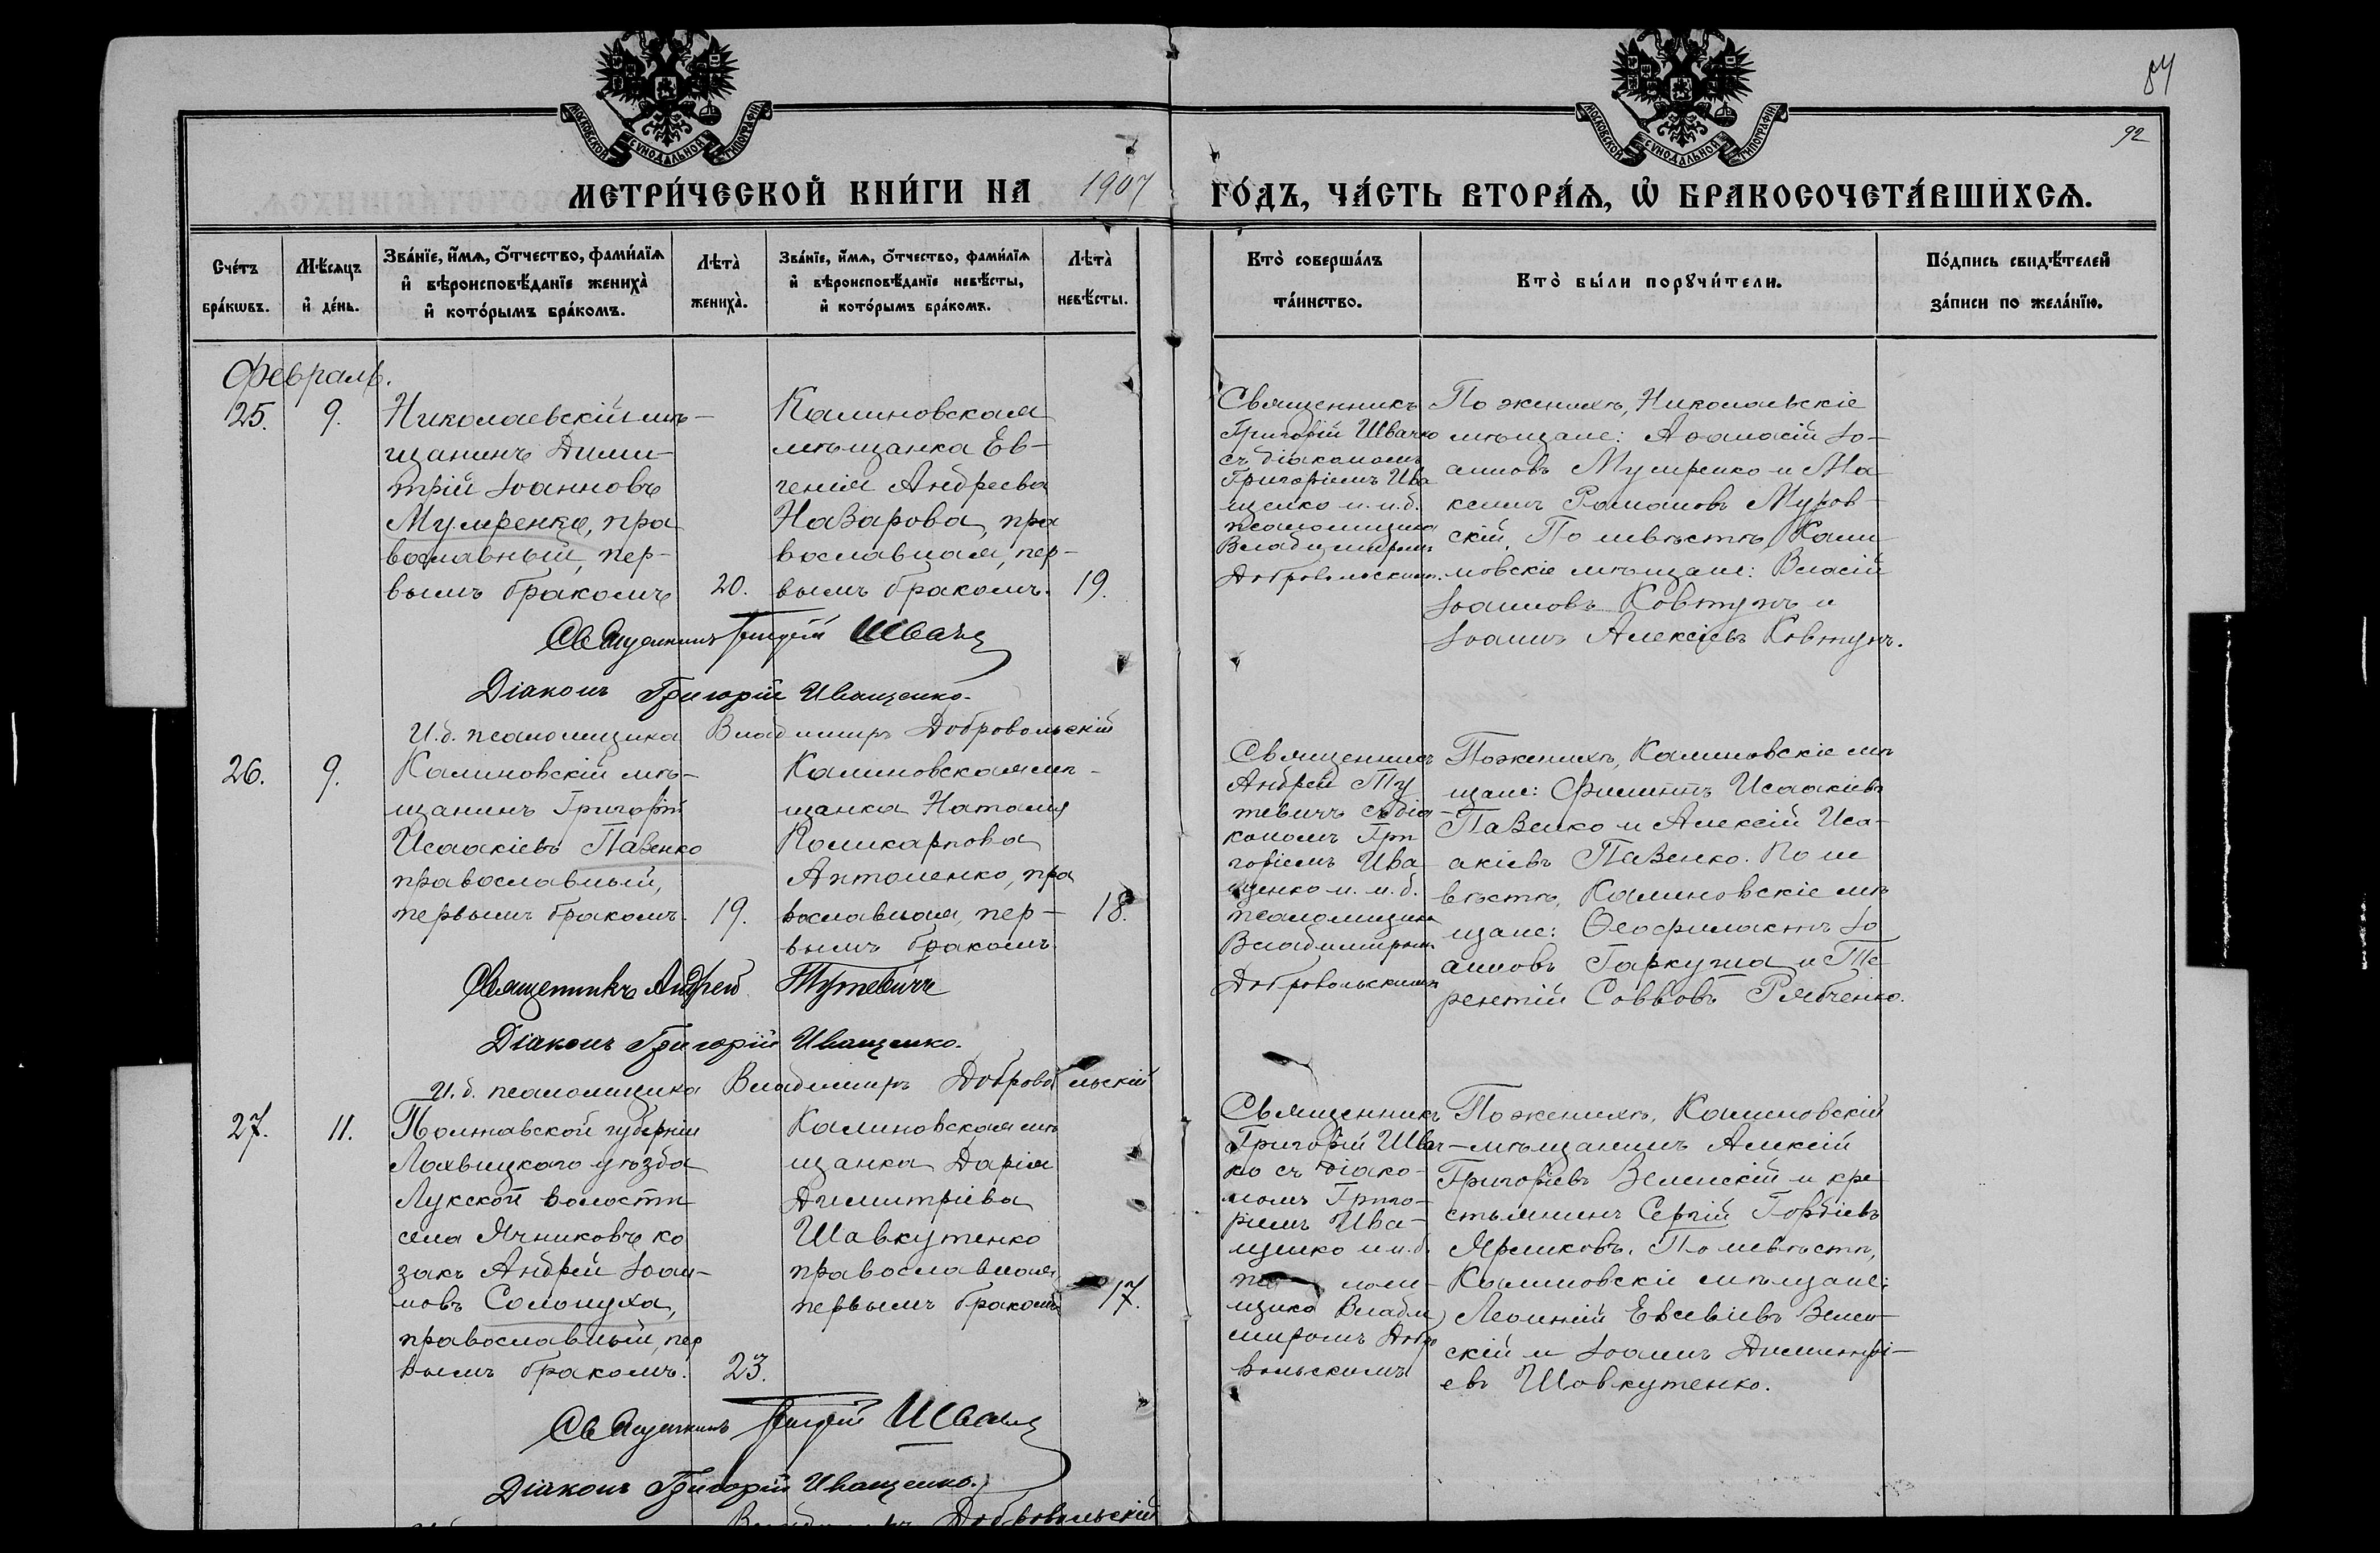 84
92
МОСКОВСКОЙ СѴНОДАЛЬНОЙ ТИПОГРАФІИ
МОСКОВСКОЙ СѴНОДАЛЬНОЙ ТИПОГРАФІИ
МЕТРИ́ЧЕСКОЙ КНИ́ГИ НА 1907 ГО́ДЪ, ЧА́СТЬ ВТОРА́Ѧ, Ѽ БРАКОСОЧЕТА́ВШИХСѦ.
Сче́тъ бра́кѡвъ.
Мѣ́сяцъ и҆ де́нь.
Зва́нїе, и҆́мѧ, о҆́тчество, фами́лїѧ
и҆ вѣроисповѣ́данїе жениха̀
и҆ кото́рымъ бра́комъ.
Лѣта̀ жениха̀.
Зва́нїе, и҆́мѧ, о҆́тчество, фами́лїѧ
и҆ вѣроисповѣ́данїе невѣ́сты,
и҆ кото́рымъ бра́комъ.
Лѣта̀ невѣ́сты.
Кто̀ соверша́лъ
та́инство.
Кто̀ бы́ли порꙋчи́тели.
По́дпись свидѣ́телей
за́писи по жела́нїю.
Февраль.
25.
9.
Николаевскій мѣ-
щанинъ Дими-
трій Іоанновъ
Мумренко, пра
вославный, пер-
вымъ бракомъ
20.
Калиновская
мѣщанка Ев-
генія Андреева
Назарова, пра
вославная, пер-
вымъ бракомъ.
19.
Священникъ
Григорій Швачко
съ діакономъ
Григоріемъ Ива
щенко и и.д.
псаломщика
Владиміромъ
Добровольскимъ.
По женихѣ, Николаевскіе
мѣщане: Аѳанасій Іо-
анновъ Мумренко и Ма
ксимъ Романовъ Муров-
скій. По невѣстѣ, Кали
новскіе мѣщане: Власій
Іоанновъ Ковтунъ и
Іоаннъ Алексіевъ Ковтунъ.
Священникъ Григорій Швачко
Діаконъ Григорій Иващенко.
И.д. псаломщика Владиміръ Добровольскій
26.
9.
Калиновскій мѣ-
щанинъ Григорій
Исаакіевъ Павенко
православный,
первымъ бракомъ.
19.
Калиновская мѣ-
щанка Наталія
Поликарпова
Антоненко, пра
вославная, пер-
вымъ бракомъ.
18.
Священникъ
Андрей Ту
тевичъ съ діа-
кономъ Гри
горіемъ Ива
щенко и и.д.
псаломщика
Владиміромъ
Добровольскимъ
По женихѣ, Калиновскіе мѣ
щане: Филиппъ Исаакіевъ
Павенко и Алексій Иса-
акіевъ Павенко. По не
вѣстѣ, Калиновскіе мѣ
щане: Ѳеофилактъ Іо
анновъ Гаркуша и Те
рентій Саввовъ Рябченко.
Священникъ Андрей Тутевичъ
Діаконъ Григорій Иващенко.
И.д. псаломщика Владиміръ Добровольскій
27.
11.
Полтавской губерніи
Лохвицкаго уѣзда
Лукской волости
села Ячниковъ ко
закъ Андрей Іоан-
новъ Солопуха,
православный, пер
вымъ бракомъ.
23.
Калиновская мѣ
щанка Дарія
Димитріева
Шавкутенко
православная,
первымъ бракомъ
17.
Священникъ
Григорій Швач-
ко съ діако-
номъ Григо-
ріемъ Ива-
щенко и и.д.
щика Влади
миромъ Добро
вольскимъ
По женихѣ, Калиновскій
мѣщанинъ Алексій
Григоріевъ Зелискій и кре
стьянинъ Сергій Гордіевъ
По невѣстѣ,
Калиновскіе мѣщане:
Леонтій Евсевіевъ Зелен-
скій и Іоаннъ Димитрі-
евъ Шовкутенко.
Священникъ Григорій Швачко
Діаконъ Григорій Иващенко.
Владиміръ Добровольскій